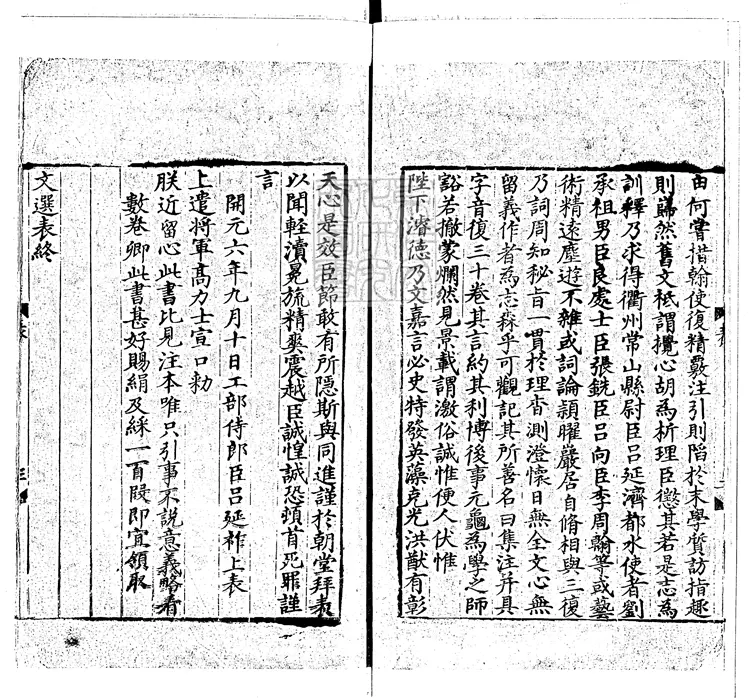 由何嘗措翰使復精覈注引則陷於末學質訪指趣
則巋然舊文祗謂攪心胡為析理臣懲其若是志為
訓釋乃求得衢州常山縣尉臣呂延濟都水使者劉
承祖男臣良處士臣張銑臣呂向臣李周翰等或藝
術精遠塵遊不雜或詞論潁曜巖居自脩相與三復
乃詞周知秘旨一貫於理杳測澄懷目無全文心無
留義作者為志森乎可觀記其所善名曰集注并具
字音復三十卷其言約其利博後事元龜為學之師
豁若撤蒙爛然見景載謂激俗誠惟便人伏惟
陛下濬德乃文嘉言必史特發英藻克光洪猷有彰
天心是效臣節敢有所隱斯與同進謹於朝堂拜表
以聞輕瀆冕旒精爽震越臣誠惶誠恐頓首死罪謹
言
開元六年九月十日工部侍郎臣呂延祚上表
上遣將軍高力士宣口敕
朕近留心此書比見注本唯只引事不說意義略看
數卷卿此書甚好賜絹及綵一百段即宜領取
文選表終
表
三